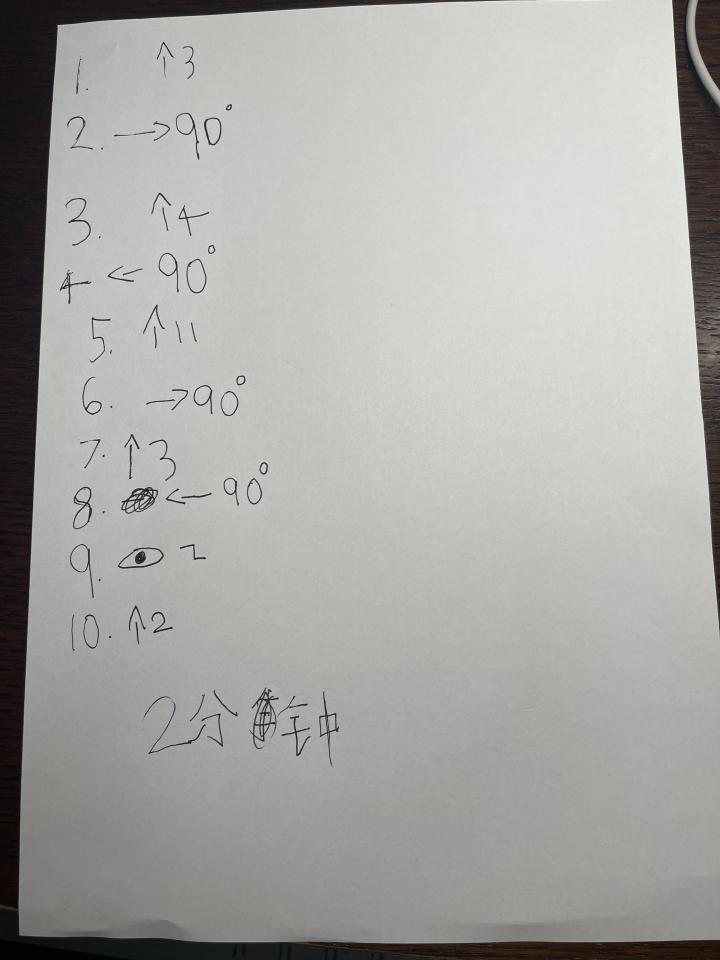 1. ↑3
2. →90°
3. ↑4
4 ← 90°
5. ↑11
6. →90°
7. ↑3
8. ←90°
9.
10. ↑2
2分钟